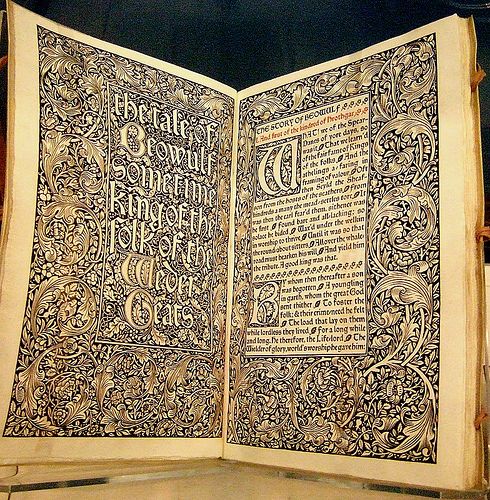 The tale of
Beowulf
Sometime
King of the
folk of the
Weder
Geats
THE STORY OF BEOWULF
And first of the kindred of Hrothgar.
WHAT! we of the Spear-
Danes of yore days, so
was it
That we learn'd
of the fair fame of Kings
of the folks
And the
athelings a-faring in
framing of valour.
Oft
then Scyld the Sheaf-
son from the hosts of the scathers, From
hundreds a many the mead-settles tore; It
was then the earl fear'd them, sithence was
he first Found bare and all-lacking; so
solace he bided, Wax'd under the welkin
in worship to thrive, Until it was so that
the round about sitters, All over the whale-
road must hearken his will, And yield him
the tribute. A good king was that.
BY whom then thereafter a son
was begotten, A youngling
in garth, whom the great God
sent thither To foster the
folk; & their crime-need he felt
The load that lay on them
while lordless they lived
For a long while
and long. He therefore, the Life-lord, The
Wielder of glory, world's worship he gave him: